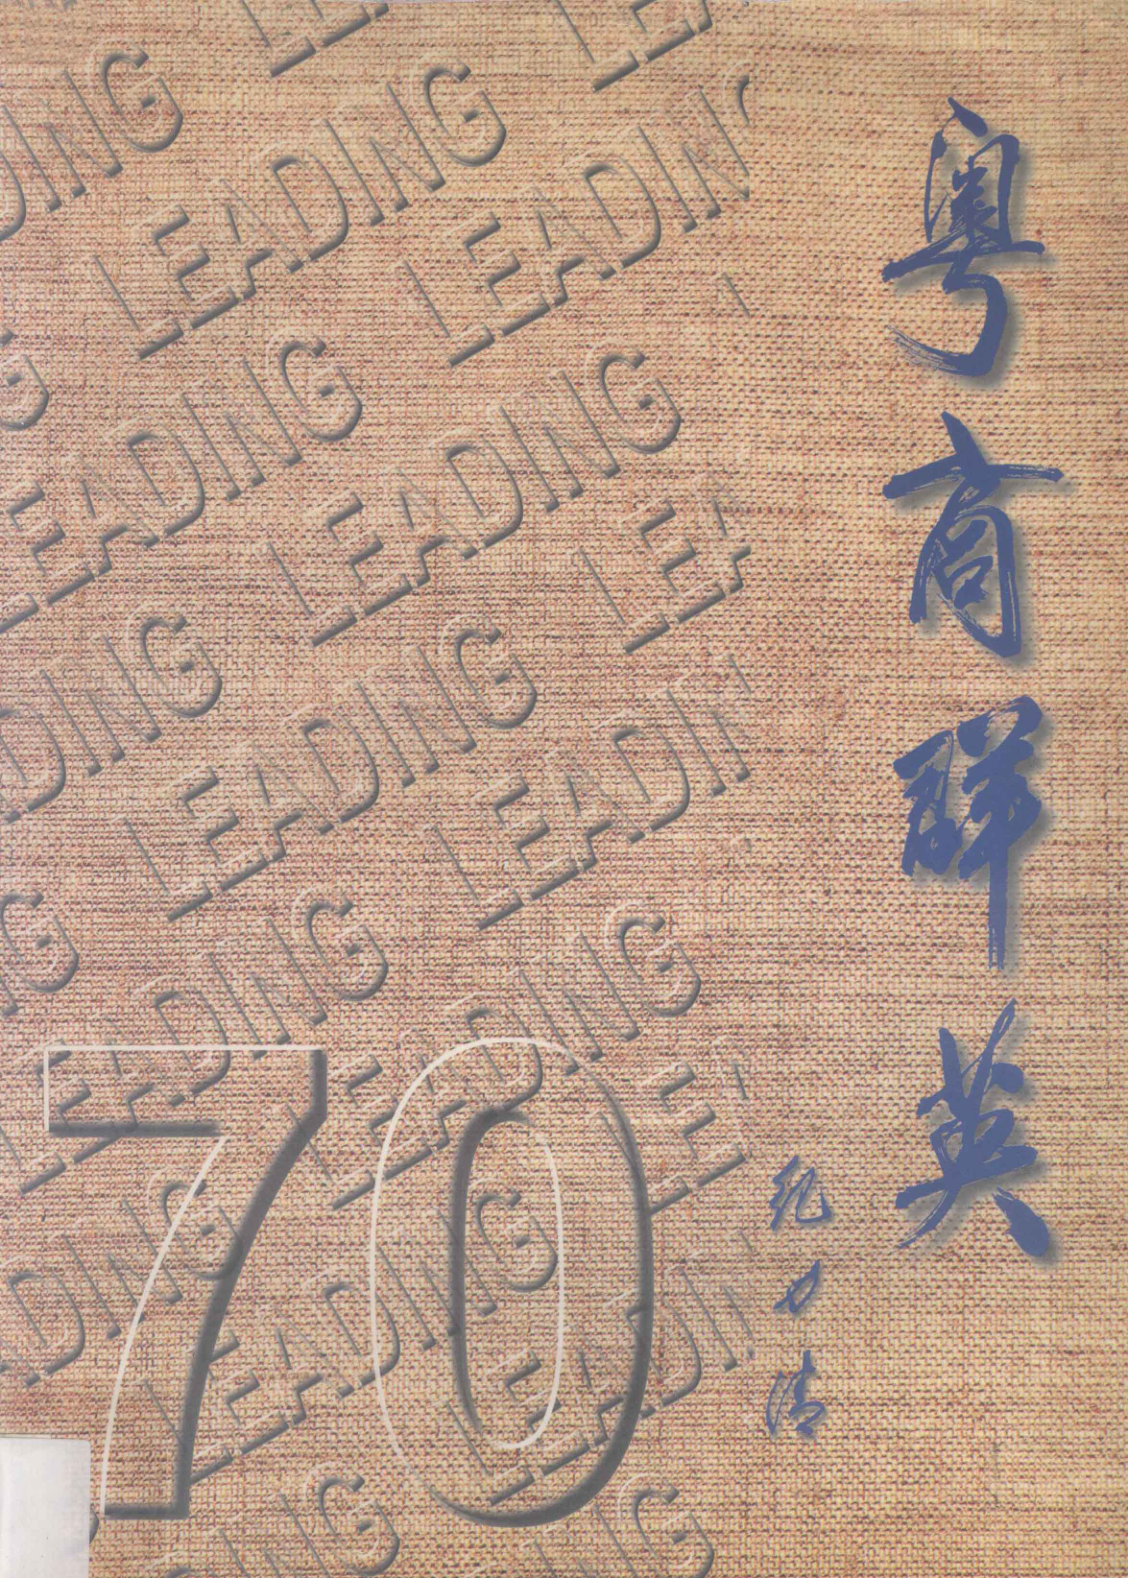 粤商群英
LEADING
LEADING
LEADING
LEADING
LEADING
LEADING
LEADING
LEADING
LEADING
LEADING
70